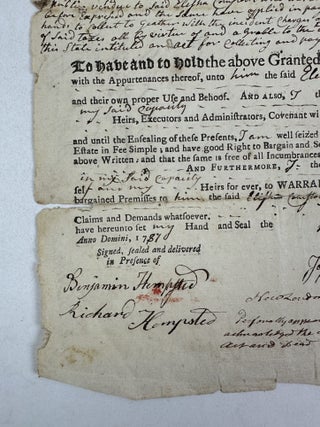 Publick vendue to said Elisha
for Exposed and the same
hands to Collect to gather with the incident Charges
of said taxes all by virtue of and a Grable to the
this State intitled an act for Collecting and pay
To Have and to Hold the above Granted
with the Appurtenances thereof, unto him the said Eli
and their own proper Use and Behoof. AND ALSO, I th
my said Capacity
Heirs, Executors and Administrators, Covenant wi
and until the Ensealing of these Presents, I am well seized
Estate in Fee Simple; and have good Right to Bargain and Se
above Written; and that the same is free of all Incumbrances
AND FURTHERMORE, I th
in my said Capacity
self and my Heirs for ever, to WARRA
bargained Premisses to him the said Elisha
Claims and Demands whatsoever.
have hereunto set my Hand and Seal the
Anno Domini, 1787
Signed, sealed and delivered
in Presence of
Benjamin Hempsted
New London
Richard Hempsted
Personally appea
acknowledged the
act and Deed